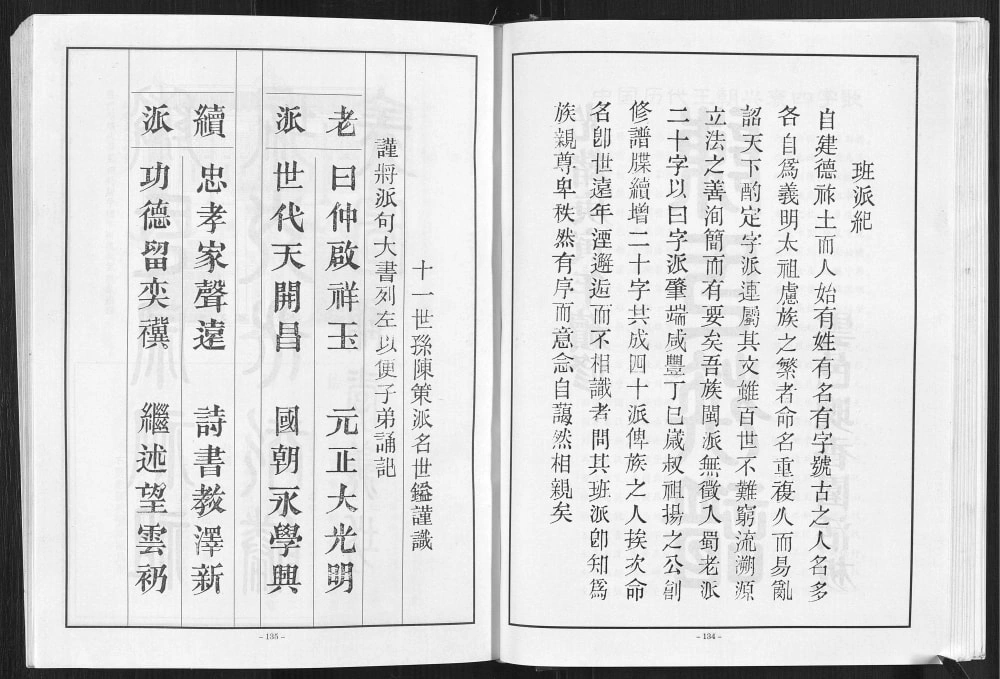 班派紀
自建德祚土而人始有姓有名有字號古之人人名多
各自爲義明太祖慮族之繁者命名重複久而易亂
詔天下酌定字派連屬其文雖百世不難窮流溯源
立法之善洵簡而有要矣吾族閩派無徵入蜀老派
二十字以曰字派肇端咸豐丁巳歲叔祖揚之公創
修譜牒續增二十字共成四十派俾族之人挨次命
名卽世遠年湮邂逅而不相識者問其班派卽知爲
族親尊卑秩然有序而意念自藹然相親矣
-134-
十一世孫陳策派名世鎰謹識
謹將派句大書列左以便子弟誦記
老 曰仲啟祥玉 元正大光明
派 世代天開昌 國朝永學興
續 忠孝家聲遠 詩書教澤新
派 功德留奕禩 繼述望雲礽
-135-